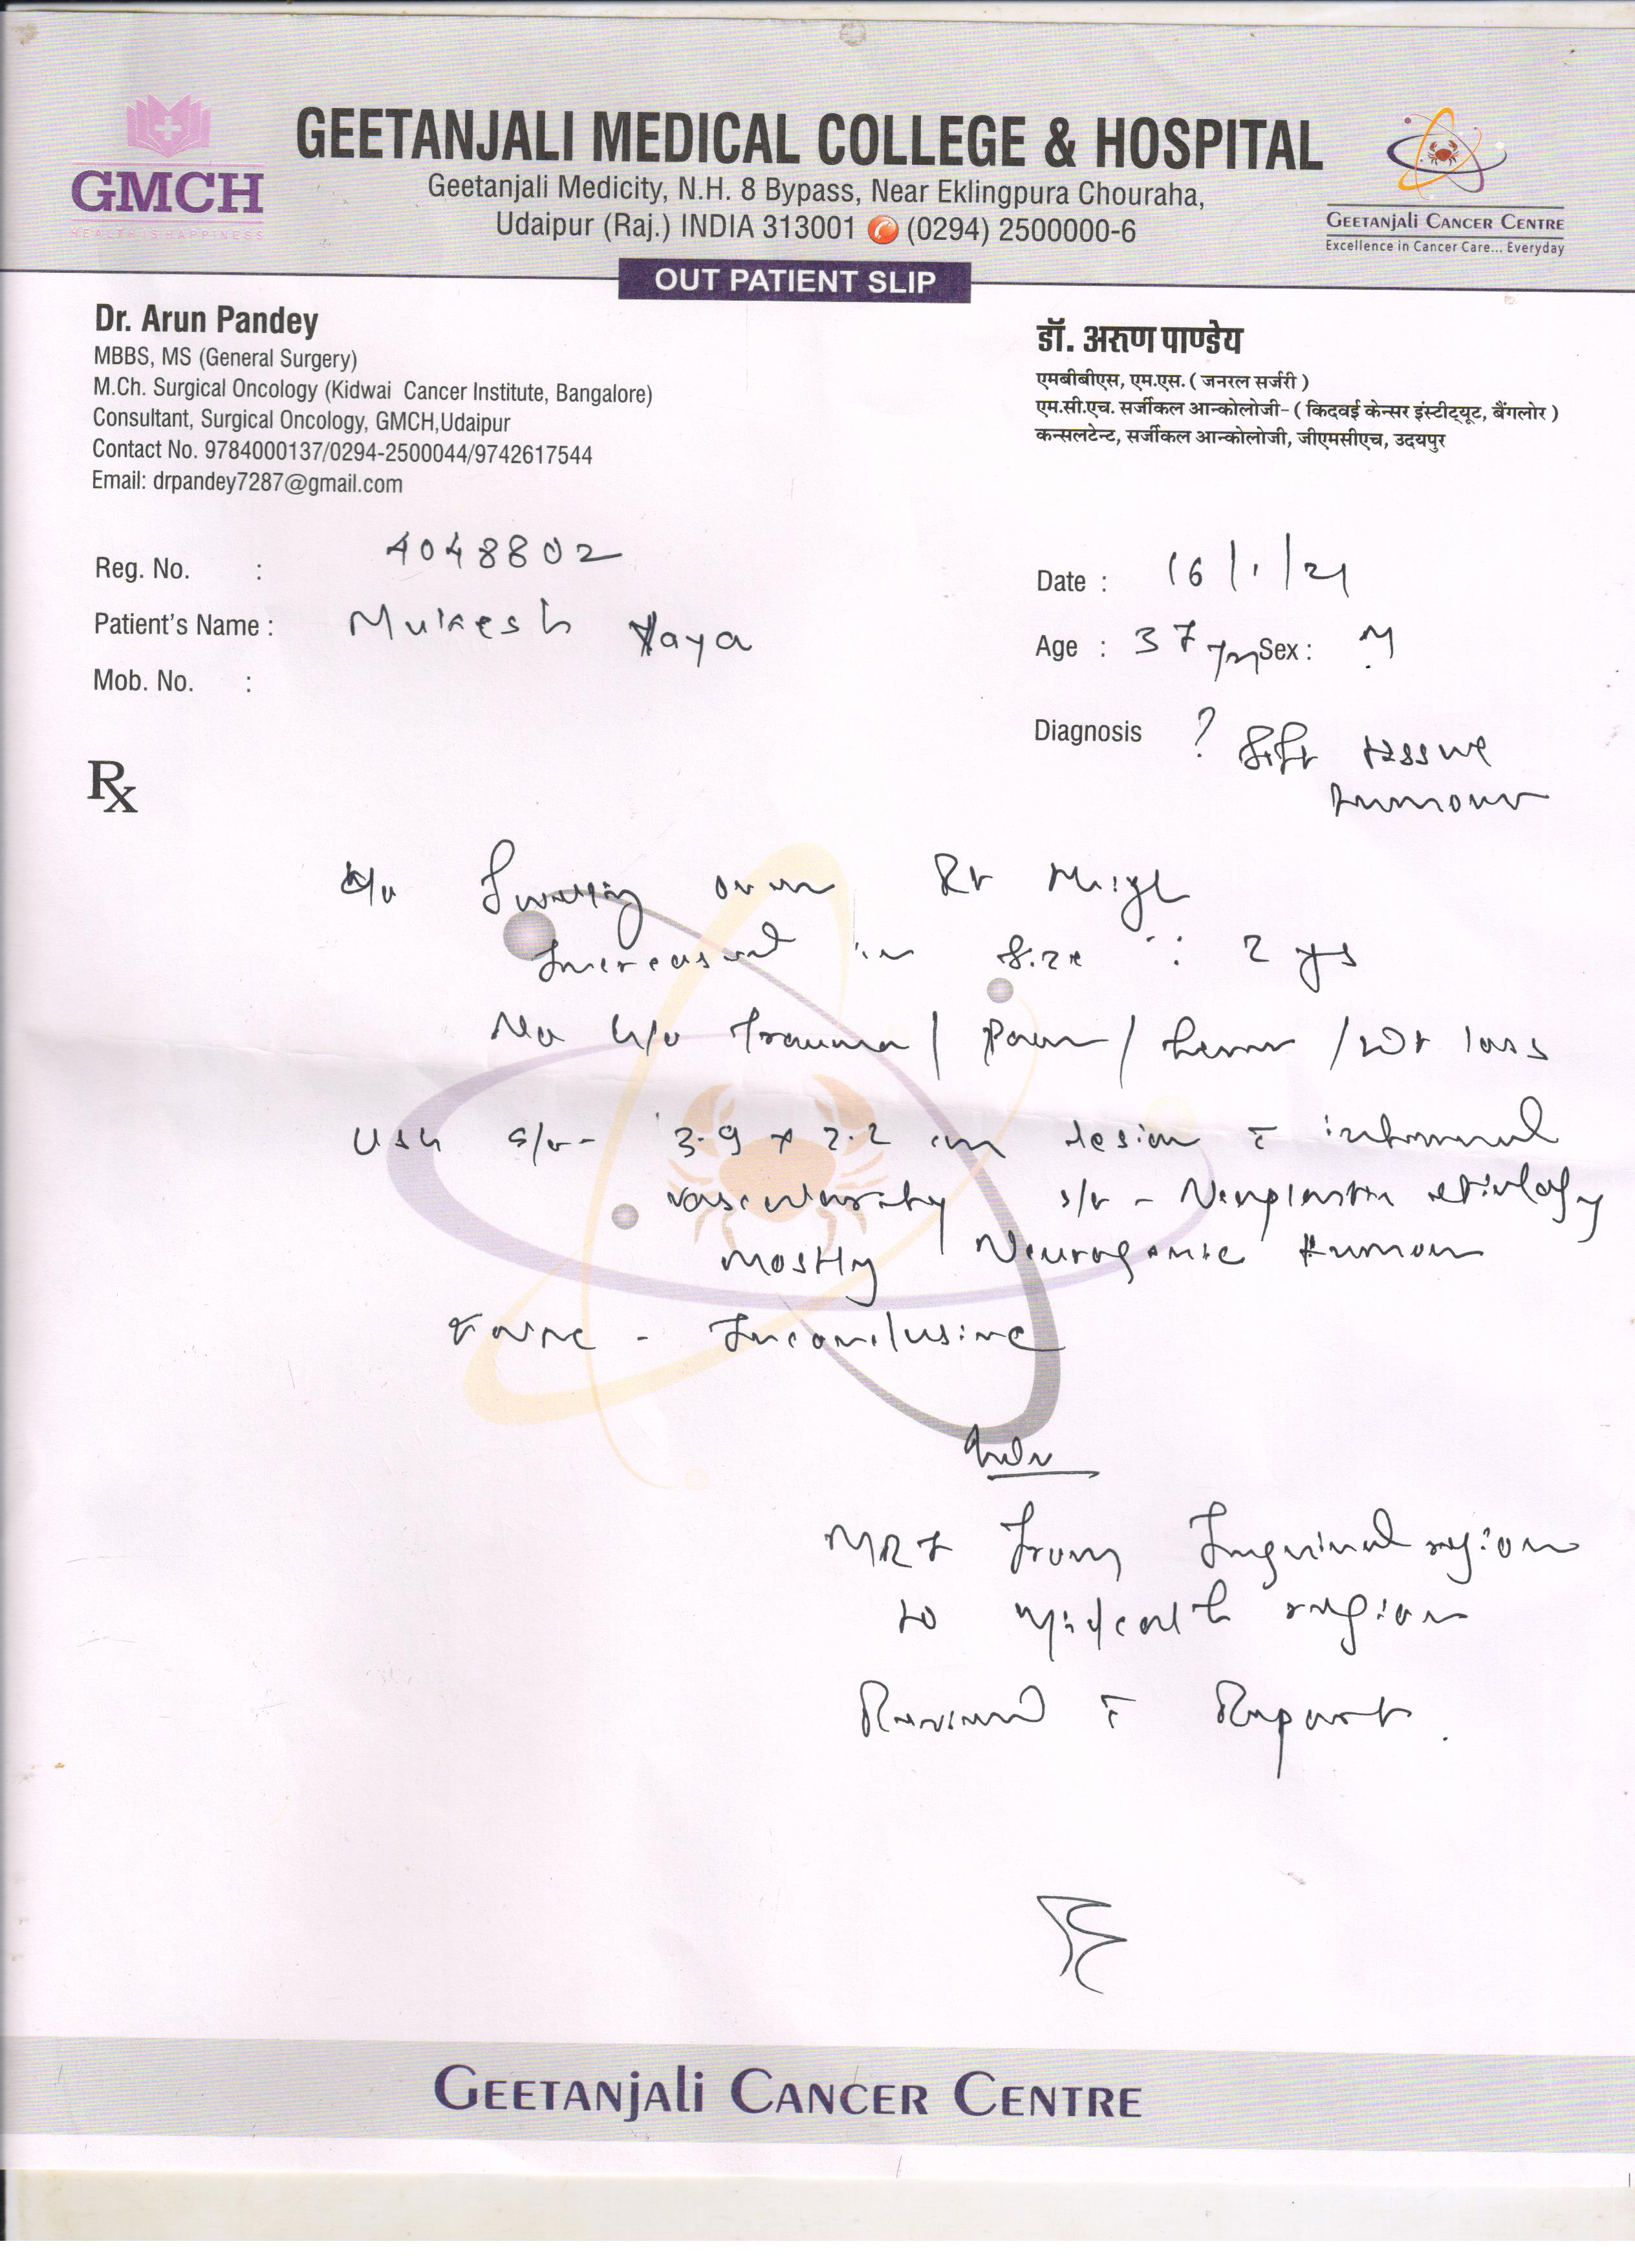 GMCH
HEALTH IS HAPPINESS
GEETANJALI MEDICAL COLLEGE & HOSPITAL
Geetanjali Medicity, N.H. 8 Bypass, Near Eklingpura Chouraha,
Udaipur (Raj.) INDIA 313001 (0294) 2500000-6
GEETANJALI CANCER CENTRE
Excellence in Cancer Care... Everyday
OUT PATIENT SLIP
Dr. Arun Pandey
MBBS, MS (General Surgery)
M.Ch. Surgical Oncology (Kidwai Cancer Institute, Bangalore)
Consultant, Surgical Oncology, GMCH,Udaipur
Contact No. 9784000137/0294-2500044/9742617544
Email: drpandey7287@gmail.com
डॉ. अरुण पाण्डेय
एमबीबीएस, एम.एस. ( जनरल सर्जरी )
एम.सी.एच. सर्जीकल आन्कोलोजी- ( किदवई केन्सर इंस्टीट्यूट, बैंगलोर )
कन्सलटेन्ट, सर्जीकल आन्कोलोजी, जीएमसीएच, उदयपुर
Reg. No. : 4048802
Patient's Name : Mukesh Haya
Mob. No. :
Date : 16/1/21
Age : 37 yrs Sex : M
Diagnosis ? Soft tissue
tumour
Rx
Swelling over Rt thigh
Increased in size ∵ 2 ys
No h/o Trauma / Pain / fever / wt loss
USG s/o - 3.9 x 2.2 cm lesion c̄ internal
vascularity s/o - Neoplastic etiology
mostly Neurogenic tumour
FNAC - Inconclusive
Adv
MRI from Inguinal region
to midcalf region
Review c̄ Report.
GEETANJALI CANCER CENTRE